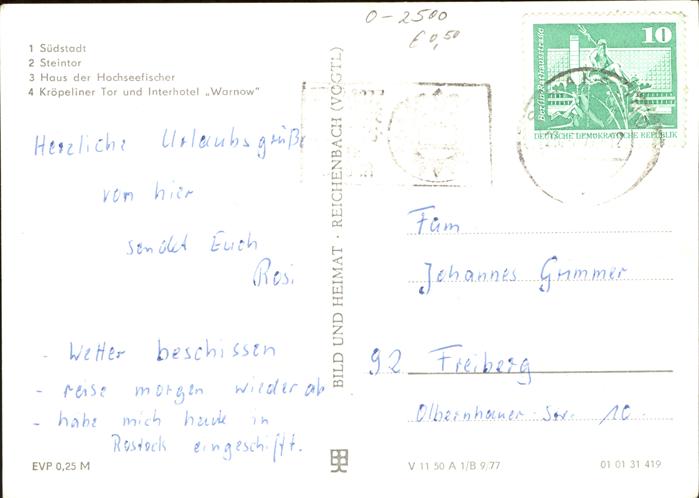 0-2500
€ 0,50
1 Südstadt
2 Steintor
3 Haus der Hochseefischer
4 Kröpeliner Tor und Interhotel „Warnow“
10
Berlin-Rathausstraße
DEUTSCHE DEMOKRATISCHE REPUBLIK
Herzliche Urlaubsgrüße
von hier
sendet Euch
Rosi.
- Wetter beschissen
- reise morgen wieder ab
- habe mich heute in
Rostock eingeschifft.
BILD UND HEIMAT · REICHENBACH (VOGTL)
Fam
Johannes Grimmer
92 Freiberg
Olbernhauer Str. 10
EVP 0,25 M
V 11 50 A 1/B 9/77
01 01 31 419